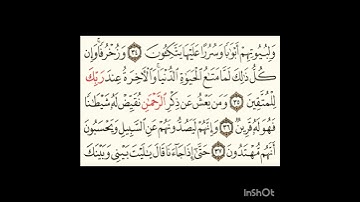 وَلِبُيُوتِهِمْ أَبْوَٰبًا وَسُرُرًا عَلَيْهَا يَتَّكِـُٔونَ ٣٤ وَزُخْرُفًا ۚ وَإِن
كُلُّ ذَٰلِكَ لَمَّا مَتَـٰعُ ٱلْحَيَوٰةِ ٱلدُّنْيَا ۚ وَٱلْـَٔاخِرَةُ عِندَ رَبِّكَ
لِلْمُتَّقِينَ ٣٥ وَمَن يَعْشُ عَن ذِكْرِ ٱلرَّحْمَـٰنِ نُقَيِّضْ لَهُۥ شَيْطَـٰنًا
فَهُوَ لَهُۥ قَرِينٌ ٣٦ وَإِنَّهُمْ لَيَصُدُّونَهُمْ عَنِ ٱلسَّبِيلِ وَيَحْسَبُونَ
أَنَّهُم مُّهْتَدُونَ ٣٧ حَتَّىٰٓ إِذَا جَآءَنَا قَالَ يَـٰلَيْتَ بَيْنِى وَبَيْنَكَ
InShOt